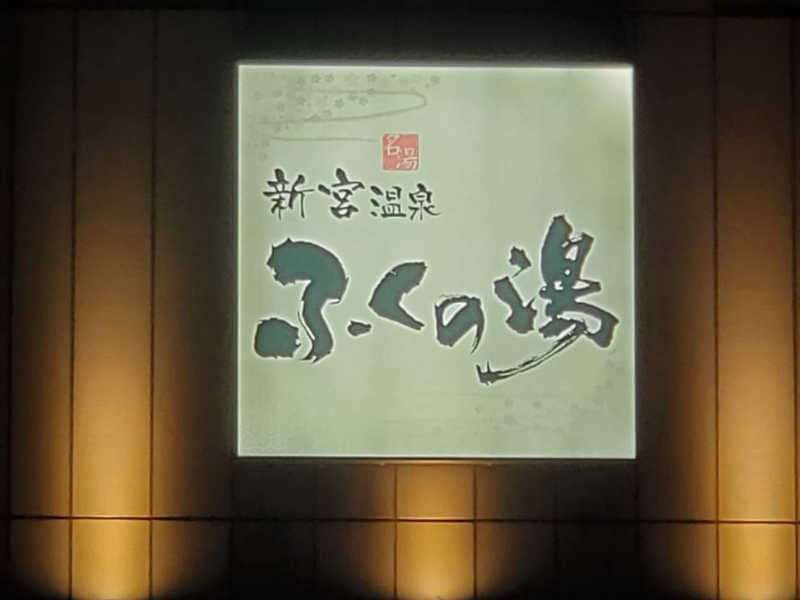 名湯
新宮温泉
ふくの湯